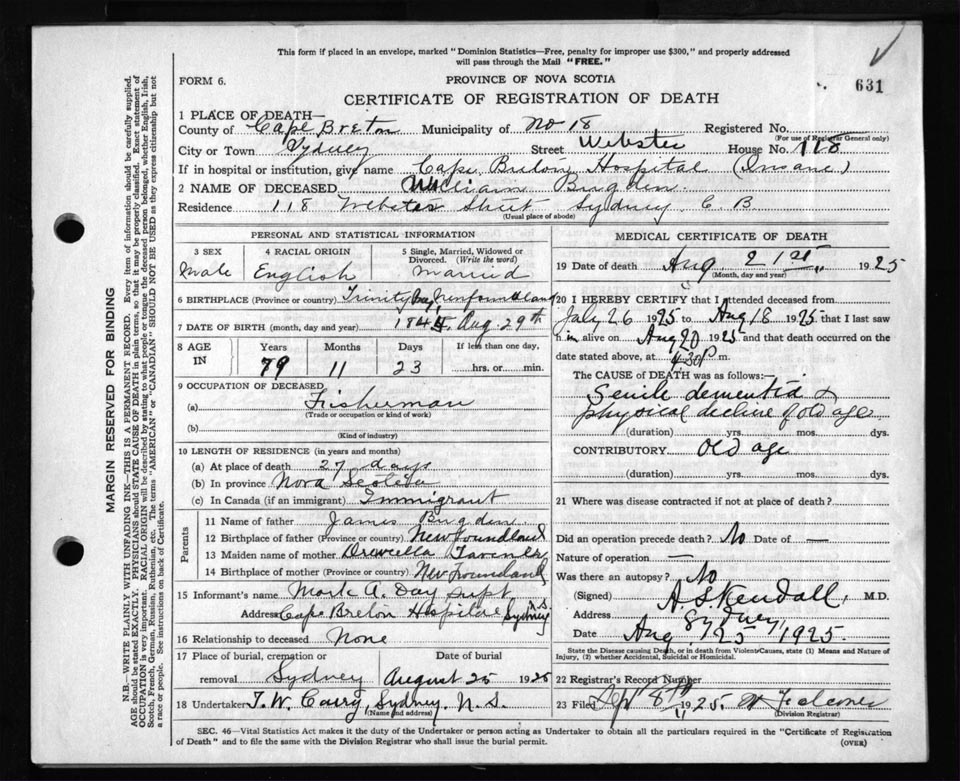 This form if placed in an envelope, marked "Dominion Statistics—Free, penalty for improper use $300," and properly addressed
will pass through the Mail "FREE."
631
FORM 6.
PROVINCE OF NOVA SCOTIA
CERTIFICATE OF REGISTRATION OF DEATH
1 PLACE OF DEATH—
County of Cape Breton Municipality of No 18 Registered No.
(For use of Registrar General only)
City or Town Sydney Street Webster House No. 118
If in hospital or institution, give name Cape Breton Hospital (Insane)
2 NAME OF DECEASED William Bugden.
Residence 118 Webster Street Sydney C. B.
(Usual place of abode)
PERSONAL AND STATISTICAL INFORMATION
3 SEX Male
4 RACIAL ORIGIN English
5 Single, Married, Widowed or Divorced. (Write the word) Married
6 BIRTHPLACE (Province or country) Trinity Bay, Newfoundland
7 DATE OF BIRTH (month, day and year) 1844, Aug. 29th
8 AGE IN Years 79 Months 11 Days 23 If less than one day, hrs. or min.
9 OCCUPATION OF DECEASED
(a) Fisherman
(Trade or occupation or kind of work)
(b)
(Kind of industry)
10 LENGTH OF RESIDENCE (in years and months)
(a) At place of death 27 days
(b) In province Nova Scotia
(c) In Canada (if an immigrant) Immigrant
Parents
11 Name of father James Bugden.
12 Birthplace of father (Province or country) Newfoundland
13 Maiden name of mother
14 Birthplace of mother (Province or country) Newfoundland
15 Informant's name Mark A. Day Supt.
Address Cape Breton Hospital Sydney N.S.
16 Relationship to deceased None
17 Place of burial, cremation or removal Sydney
Date of burial August 25 1925
18 Undertaker T. W. Curry, Sydney, N. S.
(Name and address)
MEDICAL CERTIFICATE OF DEATH
19 Date of death Aug 21st 1925
(Month, day and year)
20 I HEREBY CERTIFY that I attended deceased from
July 26 1925 to Aug 18 1925 that I last saw
h im alive on Aug 20 1925 and that death occurred on the
date stated above, at 4.30 P m.
The CAUSE of DEATH was as follows:—
Senile dementia &
physical decline of old age
(duration) yrs. mos. dys.
CONTRIBUTORY Old age
(duration) yrs. mos. dys.
21 Where was disease contracted if not at place of death?
Did an operation precede death? No Date of —
Nature of operation —
Was there an autopsy? No
(Signed) A. S. Kendall, M.D.
Address Sydney,
Date Aug 25 1925.
State the Disease causing Death, or in death from Violent Causes, state (1) Means and Nature of
Injury, (2) whether Accidental, Suicidal or Homicidal.
22 Registrar's Record Number
23 Filed Sept 8th 1925
(Division Registrar)
SEC. 46—Vital Statistics Act makes it the duty of the Undertaker or person acting as Undertaker to obtain all the particulars required in the "Certificate of Registration
of Death" and to file the same with the Division Registrar who shall issue the burial permit.
(OVER)
MARGIN RESERVED FOR BINDING
N.B.—WRITE PLAINLY WITH UNFADING INK—THIS IS A PERMANENT RECORD. Every item of information should be carefully supplied.
AGE should be stated EXACTLY. PHYSICIANS should STATE CAUSE OF DEATH in plain terms, so that it may be properly classified. Exact statement of
OCCUPATION is very important. RACIAL ORIGIN will be described by stating to what people or tongue the deceased person belonged, whether English, Irish,
Scotch, French, German, Russian, Ruthenian, etc. The terms "AMERICAN" or "CANADIAN" SHOULD NOT BE USED as they express citizenship but not
a race or people. See instructions on back of Certificate.